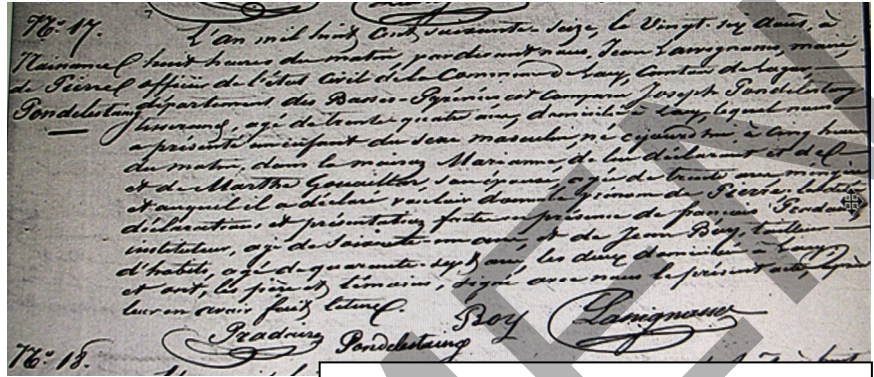 N° 17.
Naissance
de Pierre
Pondelestang
L'an mil huit cent soixante-seize, le Vingt-six août, à
huit heures du matin, pardevant nous, Jean Lavignasse, maire
officier de l'état civil de la Commune de Lay, Canton de
département des Basses-Pyrénées, est comparu Joseph Pondelestang
tisserand, agé de trente quatre ans, domicilié à Lay, lequel nous
a présenté un enfant du sexe masculin, né cejourd'hui, à cinq heures
du matin, dans la maison Marianne, de lui déclarant et de
et de Marthe son épouse, agée de trente ans, ménagère
et auquel il a déclaré vouloir donner le prénom de Pierre. Lesdites
déclaration et présentation faites en présence de françois
instituteur, agé de soixante-un ans, et de Jean Boy, tailleur
d'habits, agé de quarante-sept ans, les deux domiciliés à Lay,
et ont, les père et témoins, signé avec nous le présent acte, après
leur en avoir fait lecture.
Pondelestang Boy Lavignasse
N° 18.